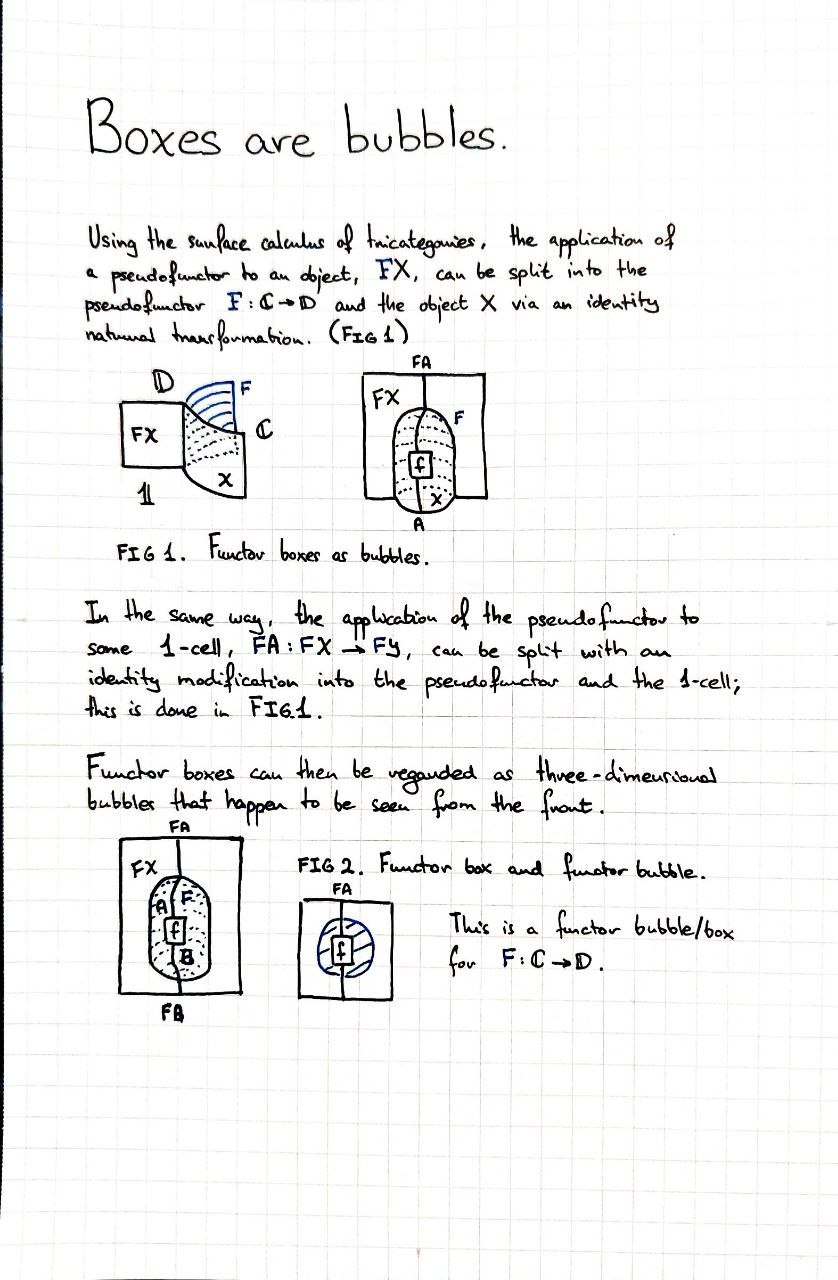 Boxes are bubbles.
Using the surface calculus of tricategories, the application of
a pseudofunctor to an object, FX, can be split into the
pseudofunctor F : ℂ→𝔻 and the object X via an identity
natural transformation. (FIG 1)
𝔻
F
FX
ℂ
𝟙
X
FA
FX
F
f
X
A
FIG 1. Functor boxes as bubbles.
In the same way, the application of the pseudofunctor to
some 1-cell, FA : FX → FY, can be split with an
identity modification into the pseudofunctor and the 1-cell;
this is done in FIG.1.
Functor boxes can then be regarded as three-dimensional
bubbles that happen to be seen from the front.
FA
FX
A
F
f
B
FB
FIG 2. Functor box and functor bubble.
FA
f
This is a functor bubble/box
for F : ℂ→𝔻.